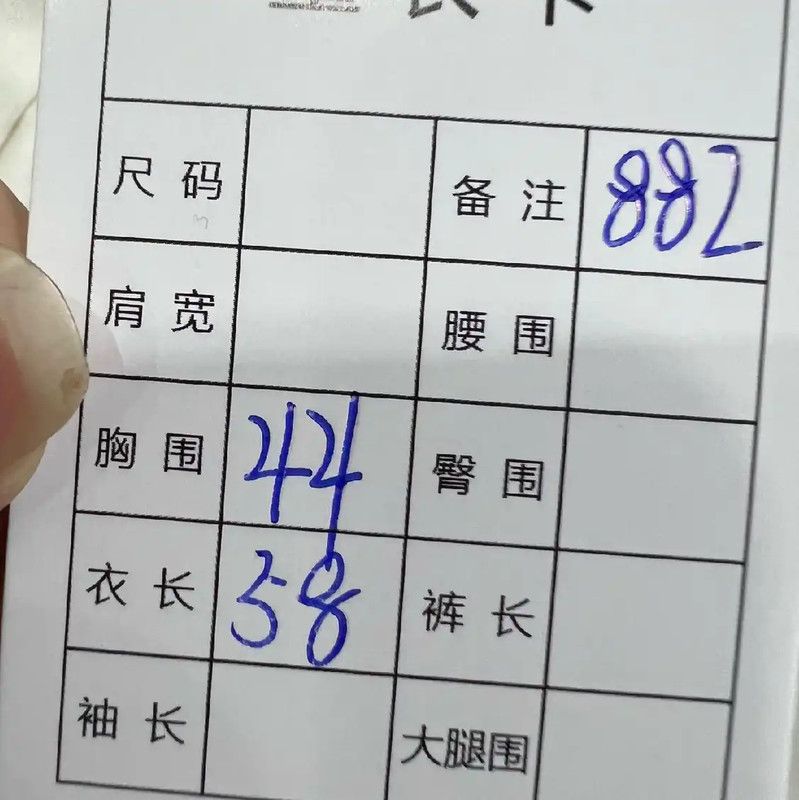 尺码 备注 882
肩宽 腰围
胸围 44 臀围
衣长 58 裤长
袖长 大腿围